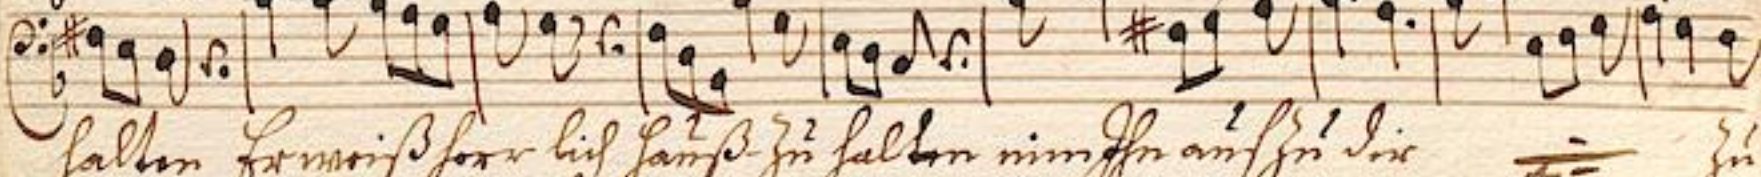 halten Er weiß herr lich hauß- zu halten nim Ihn auf zu dir zu